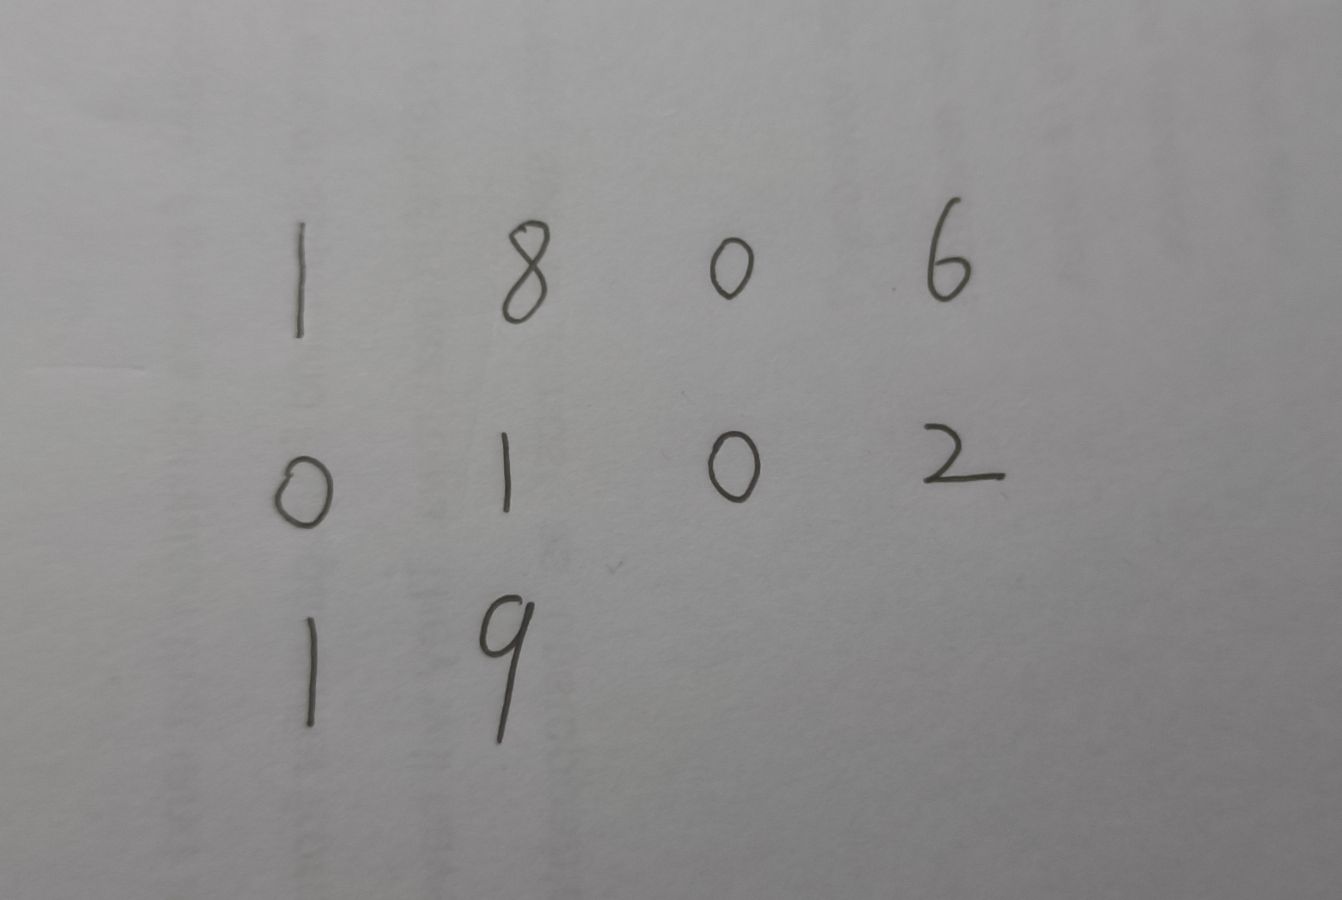 1 8 0 6
0 1 0 2
1 9